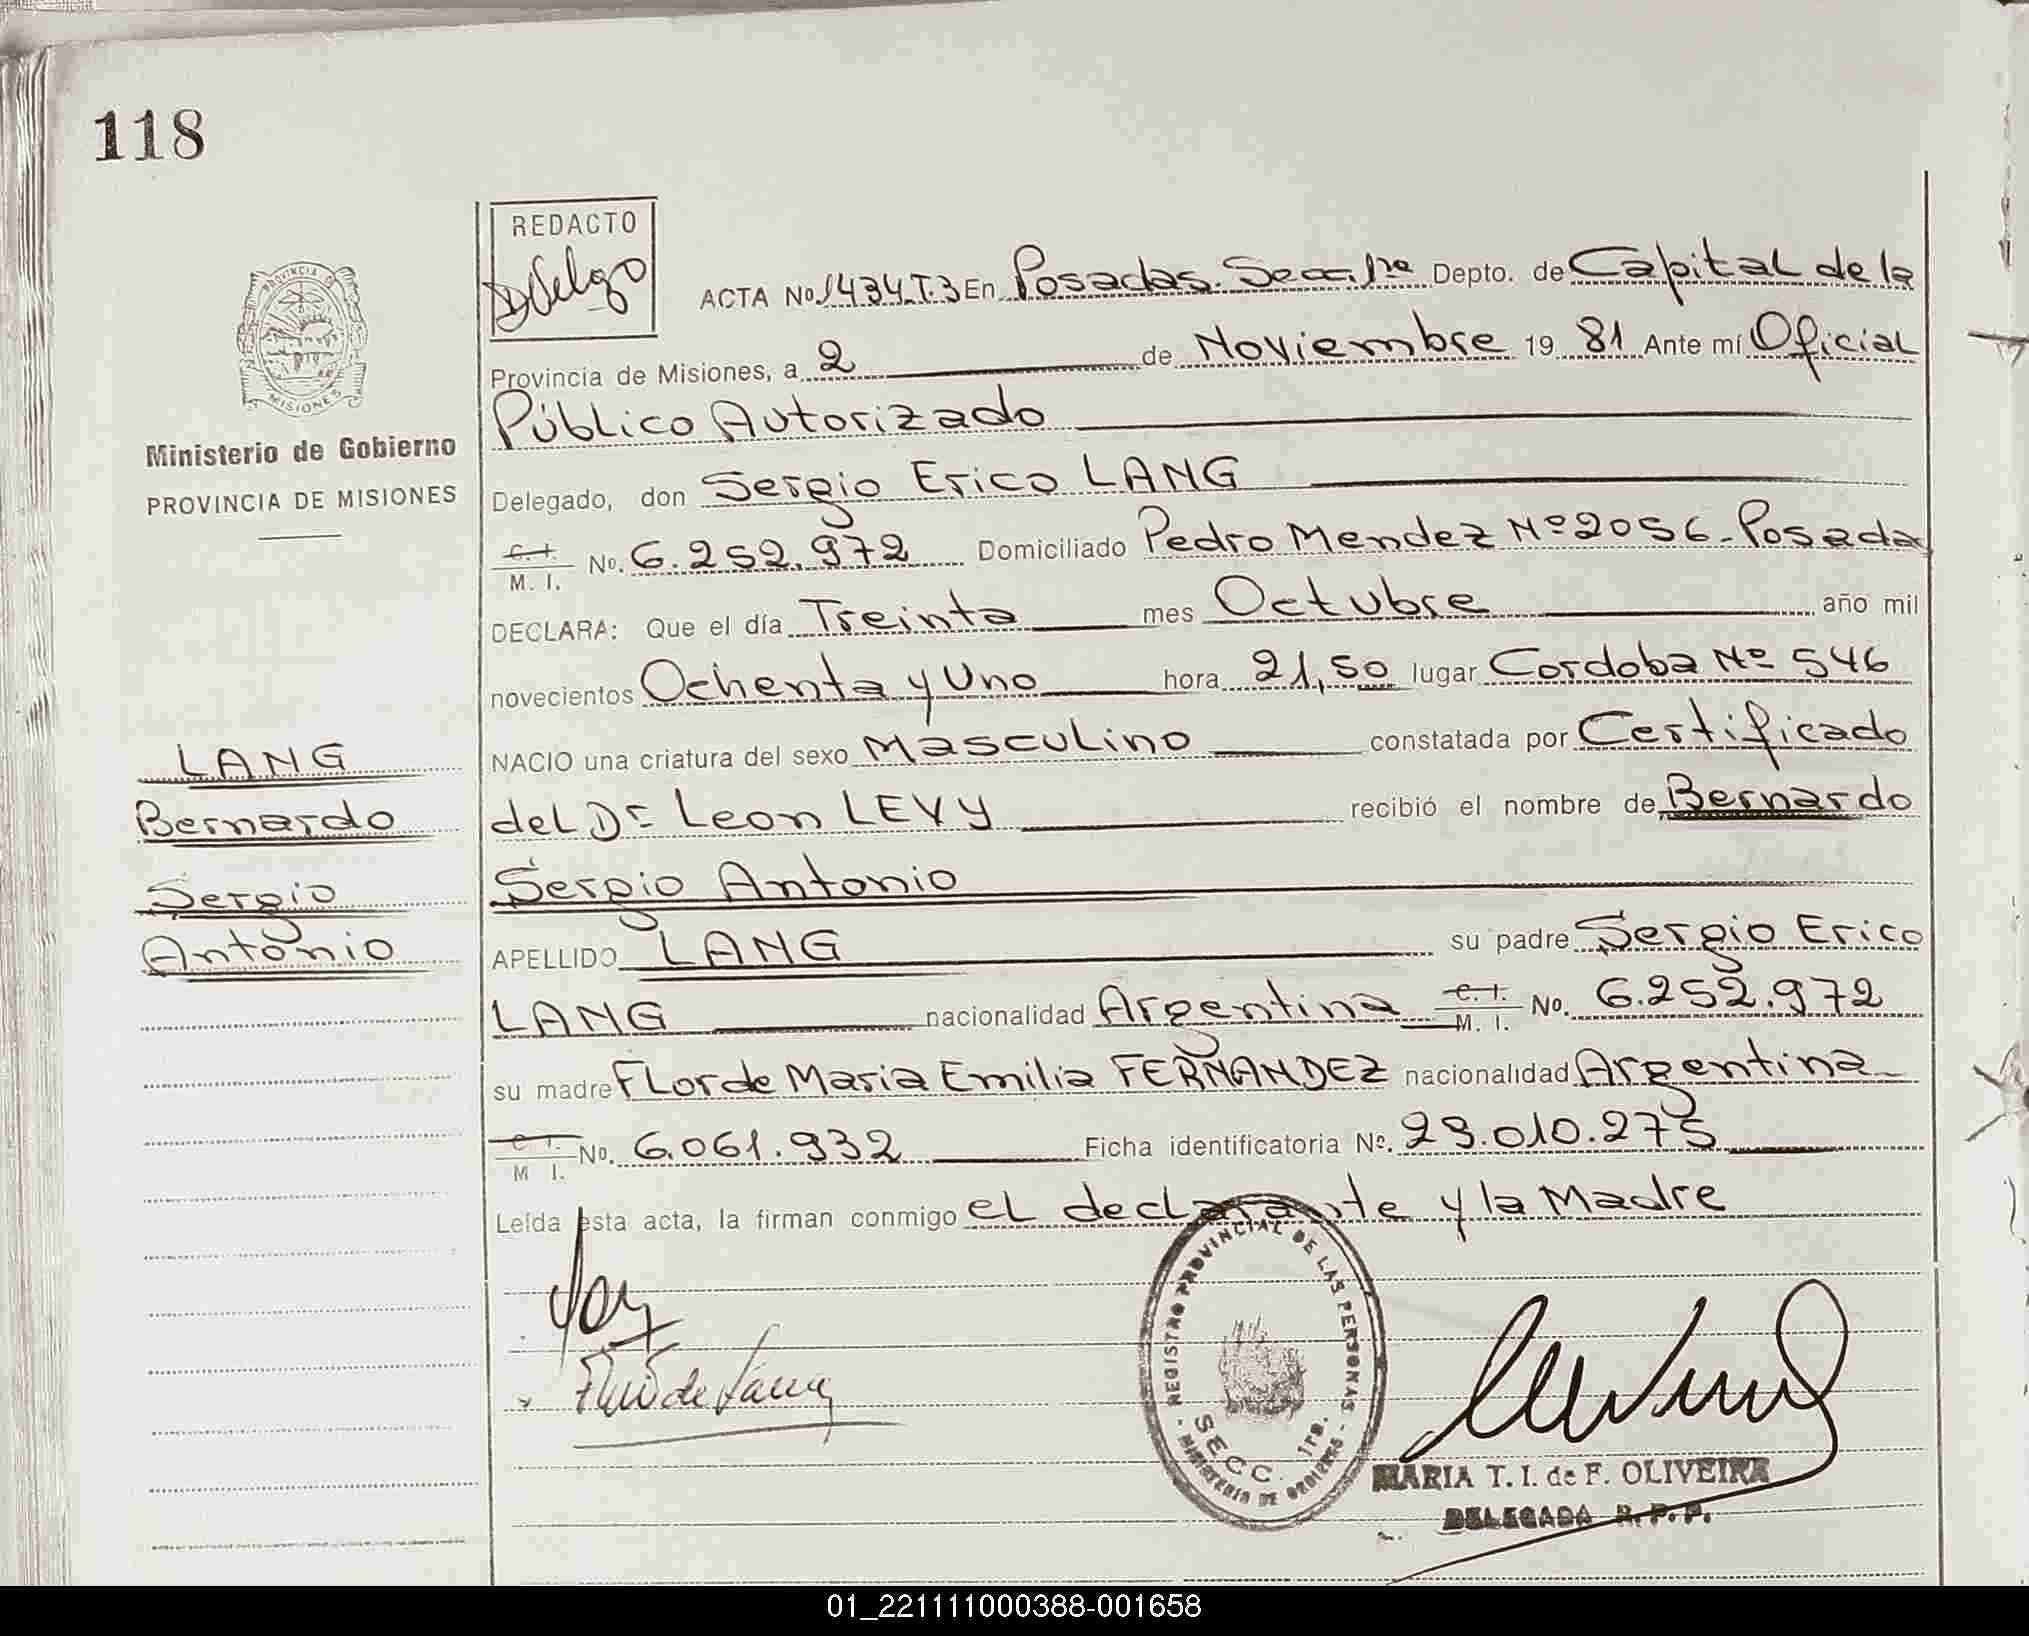 118
REDACTO
Delgo
PROVINCIA DE
MISIONES
Ministerio de Gobierno
PROVINCIA DE MISIONES
LANG
Bernardo
Sergio
Antonio
ACTA No 1434.T.3 En Posadas. Secc. 1ra Depto. de Capital de la
Provincia de Misiones, a 2 de Noviembre 19 81 Ante mí Oficial
Público Autorizado
Delegado, don Sergio Erico LANG
C. I. M. I. No. 6.252.972 Domiciliado Pedro Mendez Nº 2056 - Posadas
DECLARA: Que el día Treinta mes Octubre año mil
novecientos Ochenta y Uno hora 21,50 lugar Cordoba Nº 546
NACIO una criatura del sexo Masculino constatada por Certificado
del Dr Leon LEVY recibió el nombre de Bernardo
Sergio Antonio
APELLIDO LANG su padre Sergio Erico
LANG nacionalidad Argentina C. I. M. I. No. 6.252.972
su madre Flor de Maria Emilia FERNANDEZ nacionalidad Argentina
C. I. M I. No. 6.061.932 Ficha identificatoria Nº. 29.010.275
Leída esta acta, la firman conmigo el declarante y la Madre
REGISTRO PROVINCIAL DE LAS PERSONAS
SECC. 1ra.
MINISTERIO DE GOBIERNO
MARIA T. I. de F. OLIVEIRA
DELEGADA R. P. P.
01_221111000388-001658